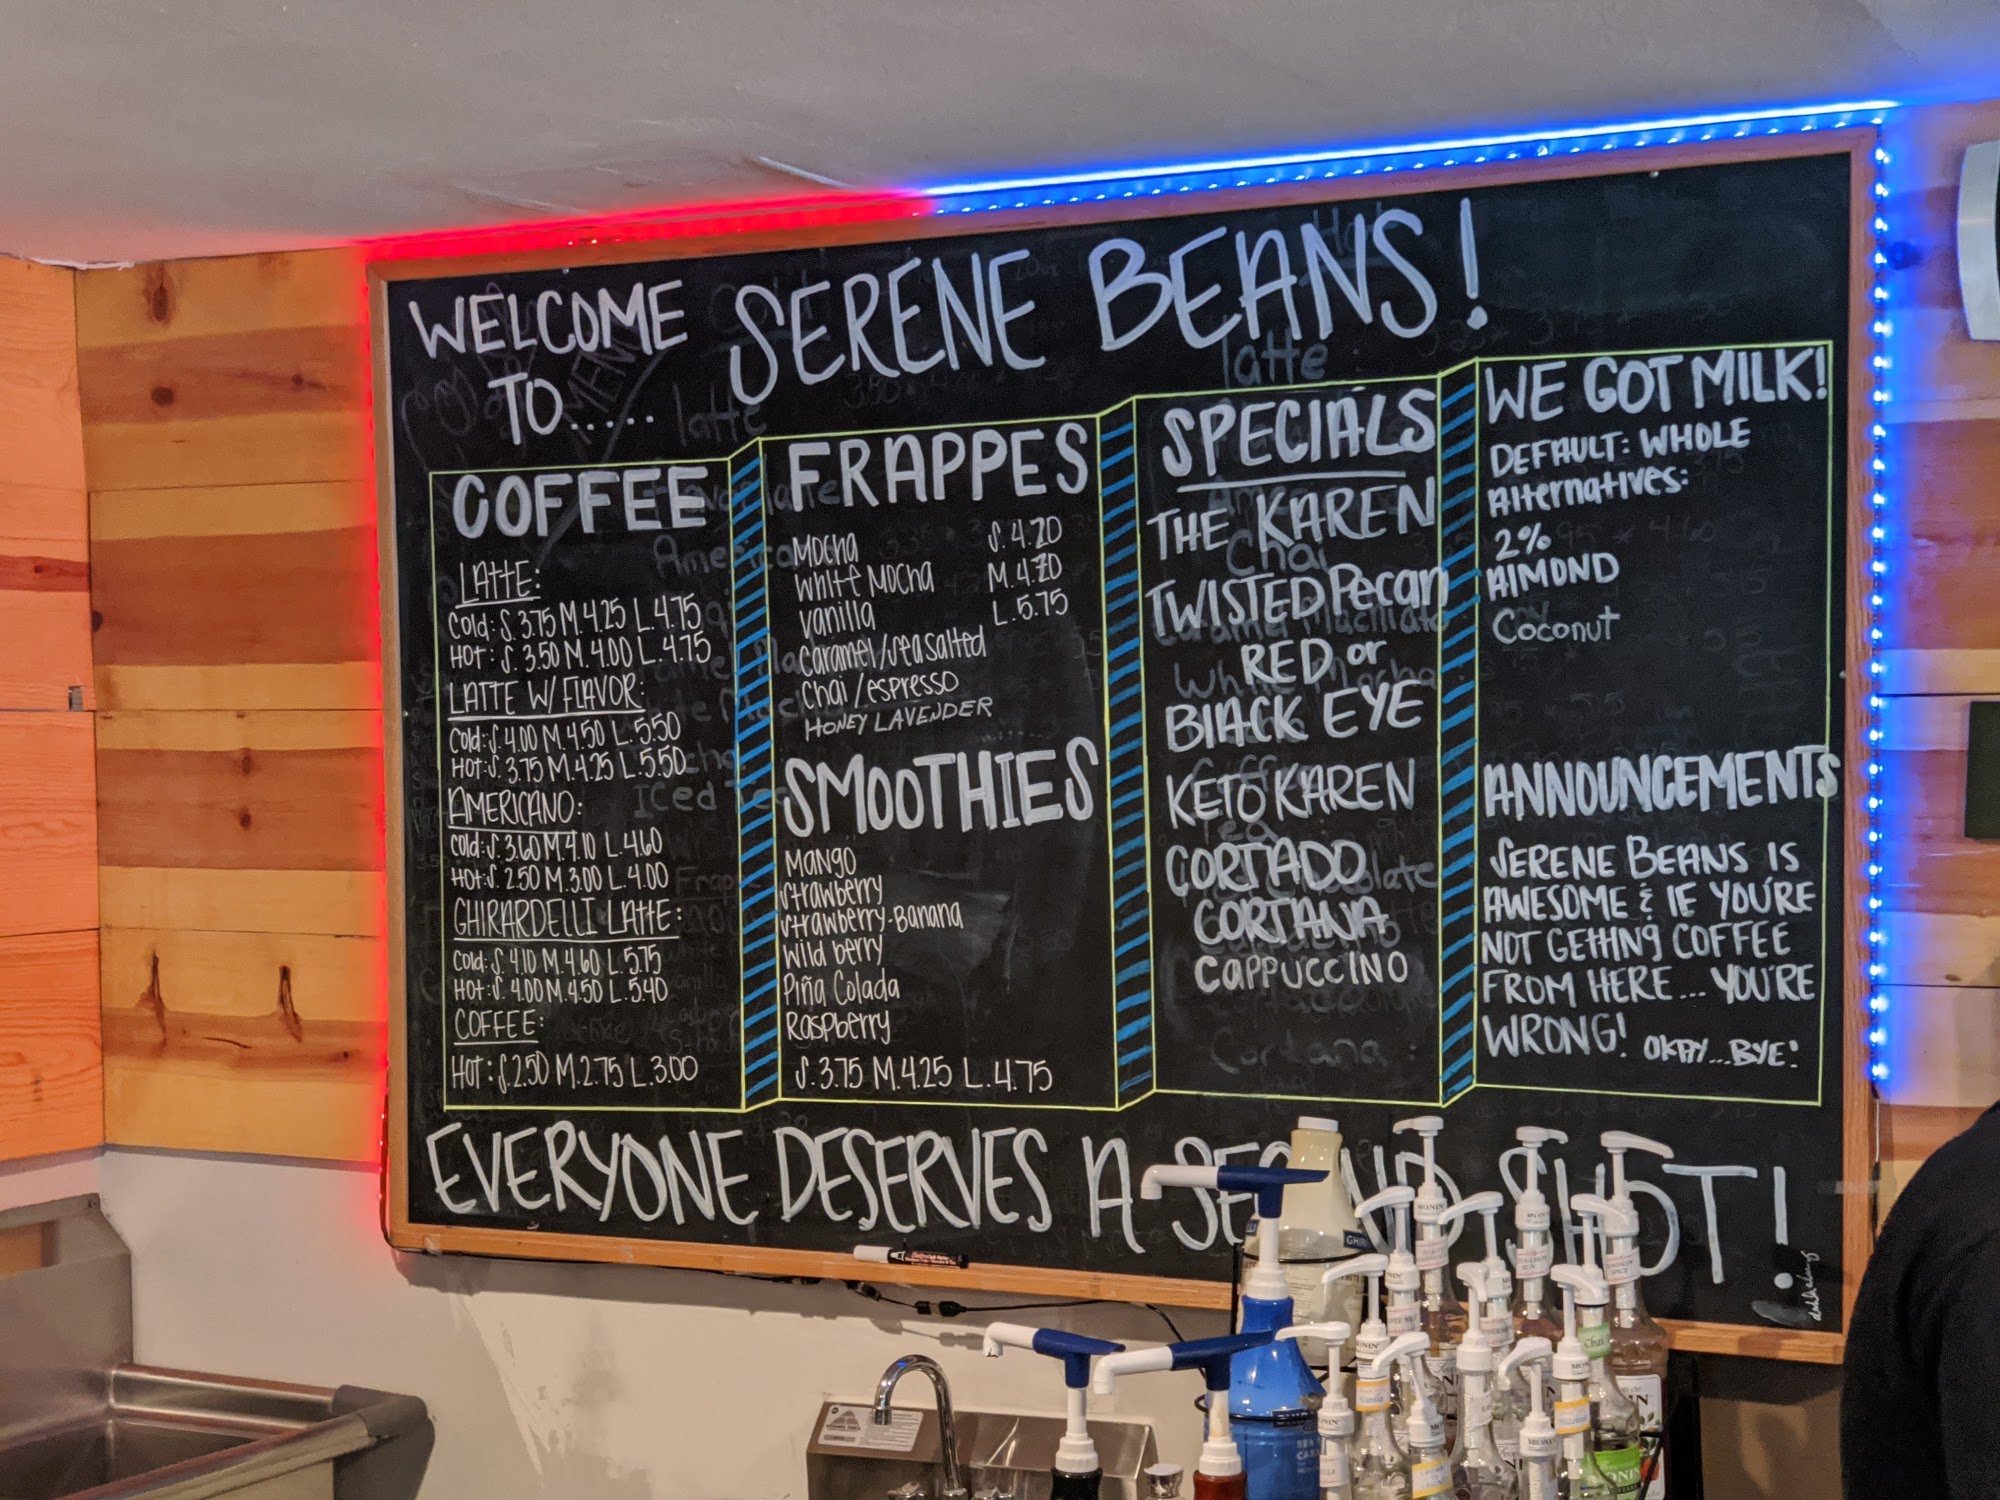 WELCOME TO..... SERENE BEANS!
COFFEE
LATTE:
Cold: S. 3.75 M. 4.25 L. 4.75
HOT: S. 3.50 M. 4.00 L. 4.75
LATTE W/ FLAVOR:
Cold: S. 4.00 M. 4.50 L. 5.50
HOT: S. 3.75 M. 4.25 L. 5.50
AMERICANO:
Cold: S. 3.60 M. 4.10 L. 4.60
HOT: S. 2.50 M. 3.00 L. 4.00
GHIRARDELLI LATTE:
Cold: S. 4.10 M. 4.60 L. 5.75
HOT: S. 4.00 M. 4.50 L. 5.40
COFFEE:
HOT: S. 2.50 M. 2.75 L. 3.00
FRAPPES
Mocha S. 4.20
White Mocha M. 4.70
Vanilla L. 5.75
Caramel/sea salted
Chai/espresso
HONEY LAVENDER
SMOOTHIES
Mango
Strawberry
Strawberry-Banana
Wild berry
Piña Colada
Raspberry
S. 3.75 M. 4.25 L. 4.75
SPECIALS
THE KAREN
TWISTED Pecan
RED or
BLACK EYE
KETO KAREN
CORTADO
CORTANA
CAPPUCCINO
WE GOT MILK!
DEFAULT: WHOLE
Alternatives:
2%
ALMOND
Coconut
ANNOUNCEMENTS
SERENE BEANS IS
AWESOME & IF YOU'RE
NOT GETTING COFFEE
FROM HERE... YOU'RE
WRONG! OKAY...BYE!
EVERYONE DESERVES A SECOND SHOT!